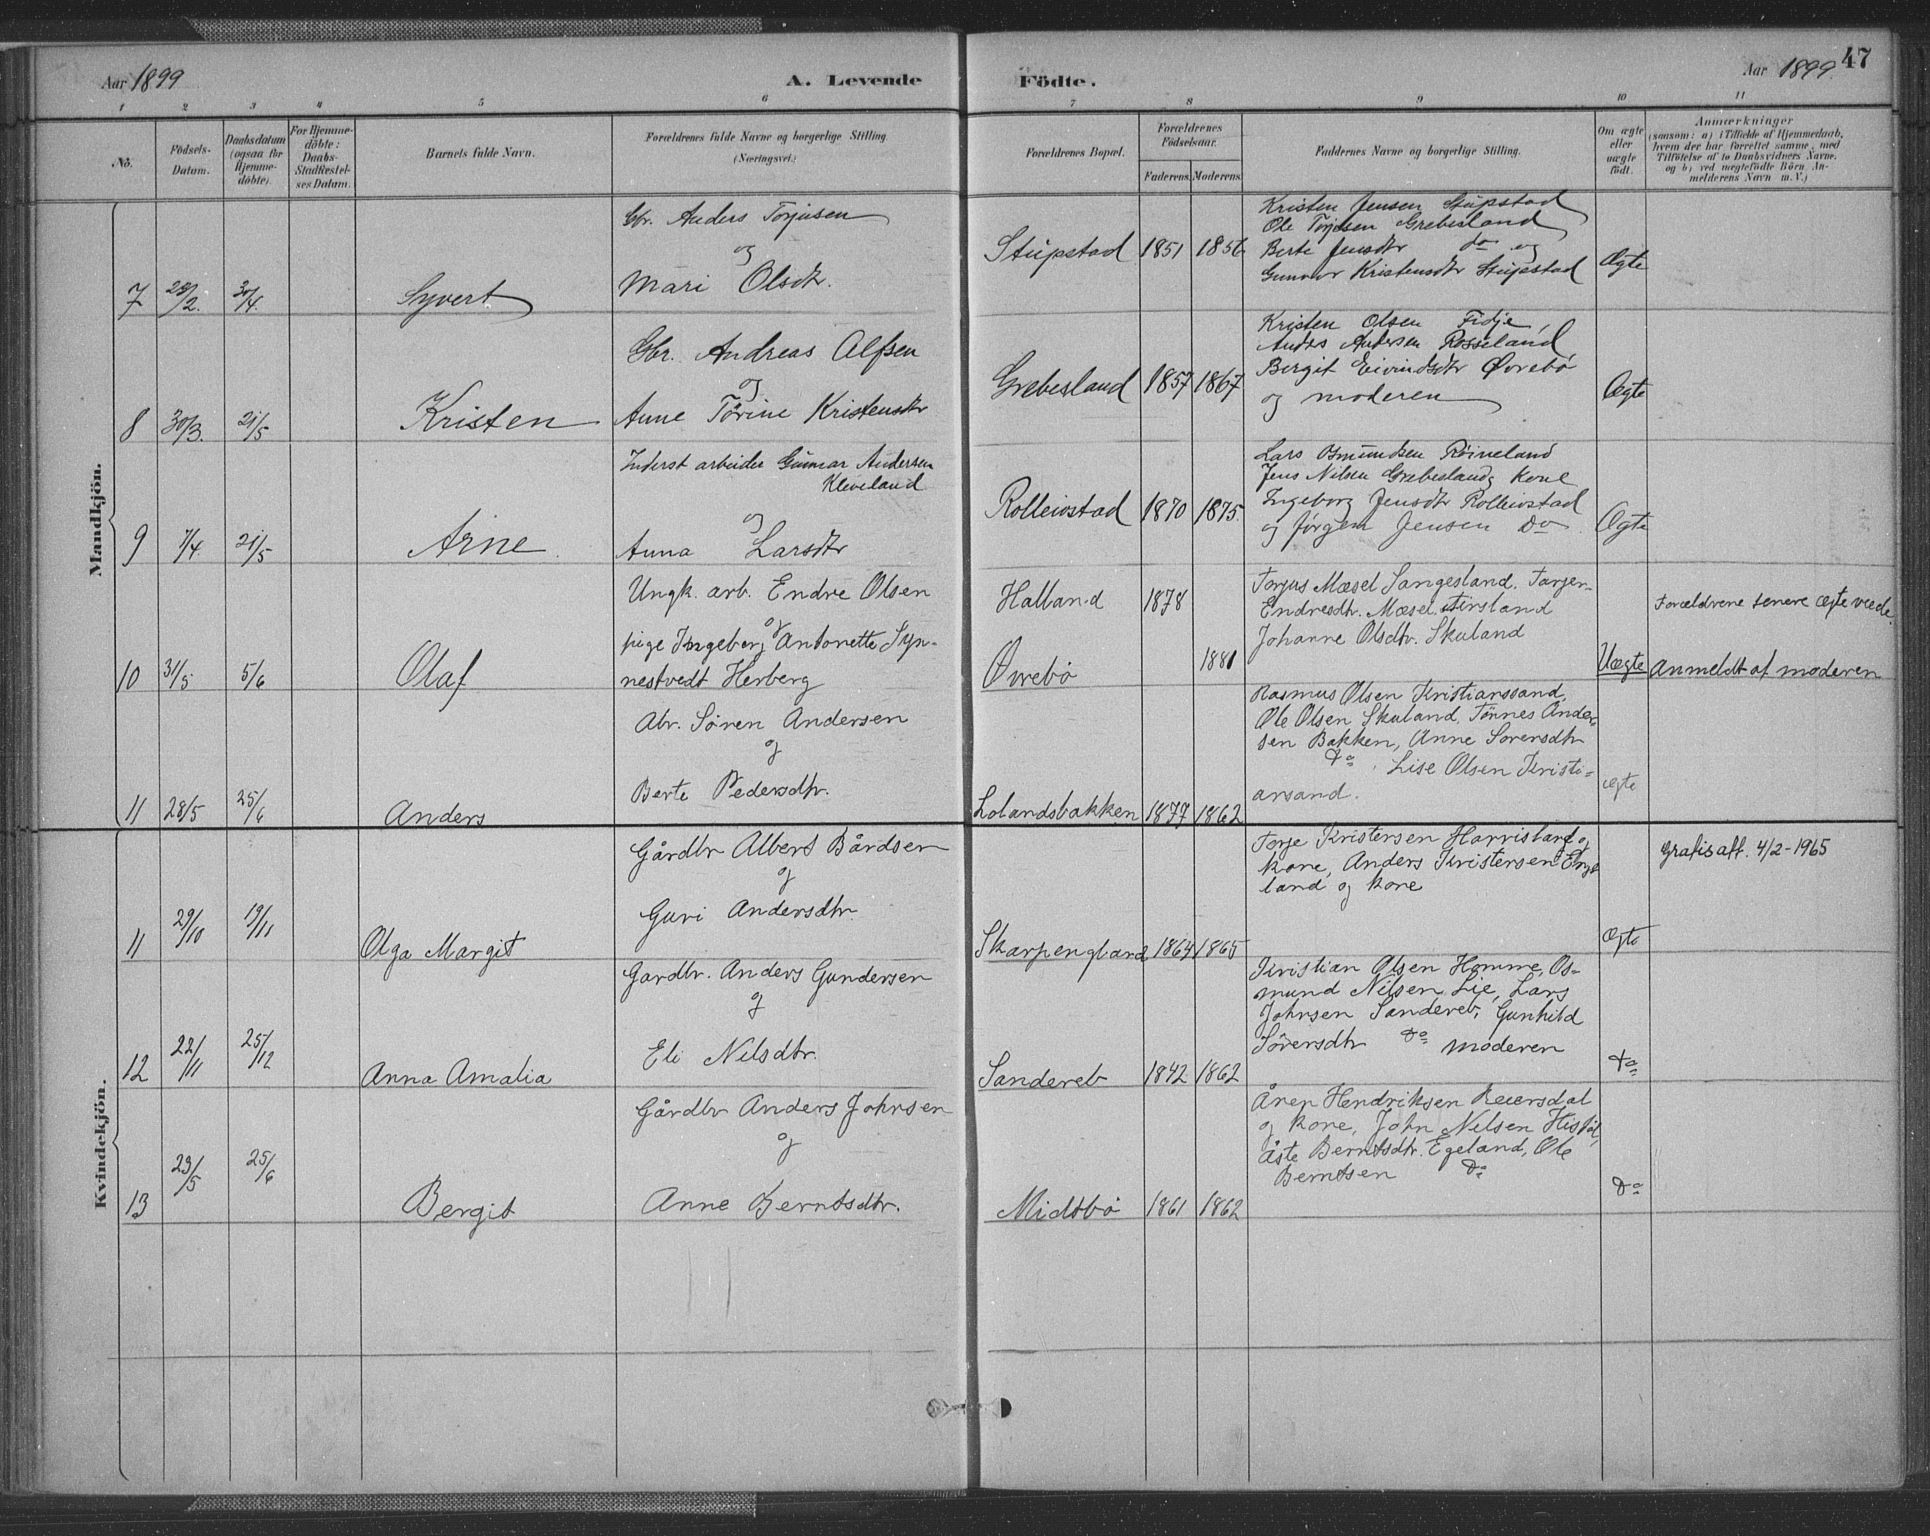 47
Aar 1899
A. Levende Födte.
Aar 1899
1 2 3 4 5 6 7 8 9 10 11
No.
Födsels-Datum.
Daabsdatum (ogsaa for Hjemme-döbte).
For Hjemme-döbte: Daabs-Stadfestel-ses Datum.
Barnets fulde Navn.
Forældrenes fulde Navne og borgerlige Stilling. (Næringsvei.)
Forældrenes Bopæl.
Forældrenes Födselsaar.
Faderens. Moderens.
Faddernes Navne og borgerlige Stilling.
Om ægte eller uægte födt.
Anmærkninger
(saasom: a) i Tilfælde af Hjemmedaab,
hvem der har forrettet samme, med
Tilföielse af to Daabsvidners Navne,
og b) ved uægtefödte Börn An-
melderens Navn m. V.)
Mandkjön.
7 28/2. 30/4. Syvert
Gbr. Anders Torjusen
og
Mari Olsdtr.
Stupstad 1851 1856
Kristen Jensen Stupstad
Ole Torjusen Grebesland
Berte Jensdtr do og
Gunvor Kristensdtr Stupstad
Ægte
8 30/3. 21/5 Kristen
Gbr. Andreas Alfsen
og
Anne Törine Kristensdtr
Grebesland 1857 1867
Kristen Olsen Fidje,
Anders Andersen Rosseland
Bergit Eivindsdtr Øvrebö
og moderen
Ægte
9 7/4. 21/5 Arne
Inderst arbeider Gunnar Andersen
Kleveland
og
Anna Larsdtr
Rolleivstad 1870 1875
Lars Osmundsen Röineland
Jens Nilsen Grebesland og kone
Ingeborg Jensdtr Rolleivstad
og Jørgen Jensen Do
Ægte
10 31/5 5/6 Olaf
Ungk. arb. Endre Olsen
og
pige Ingeborg Antonette Syn-
nestvedt Herberg
Halland 1878
Øvrebö 1881
Torjus Mæsel Sangesland, Tarjer-
Endresdtr. Mæsel
Johanne Olsdtr. Skuland
Uægte
Forældrene senere ægteviede.
Anmeldt af moderen
11 28/5 25/6 Anders
Abr. Sören Andersen
og
Berte Pedersdtr.
Lolandsbakken 1877 1862
Rasmus Olsen Kristianssand,
Ole Olsen Skuland, Tönnes Ander-
sen Bakken, Anne Sorensdtr
Do. Lise Olsen Kristi-
ansand.
ægte
Kvindekjön.
11 29/10 19/11 Olga Margit
Gårdbr Albert Bårdsen
og
Guri Andersdtr
Skarpengland 1864 1865
Torje Kristensen Harvisland og
kone, Anders Kristensen Enge-
land og kone
Ægte
Gratisatt. 4/2-1965
12 22/11 25/12 Anna Amalia
Gardbr. Anders Gundersen
og
Eli Nilsdtr.
Sandereb 1842 1862
Kristian Olsen Homme, Os-
mund Nilsen Lie, Lars
Johnsen Sandereb, Gunhild
Sörensdtr Do moderen
Do
13 23/5 25/6 Bergit
Gårdbr Anders Johnsen
og
Anne Berntsdtr.
Midtbö 1861 1862
Åren Hendriksen Reiersdal
og kone, John Nilsen Histöl,
Åste Berntsdtr. Egeland, Ole
Berntsen Do
Do